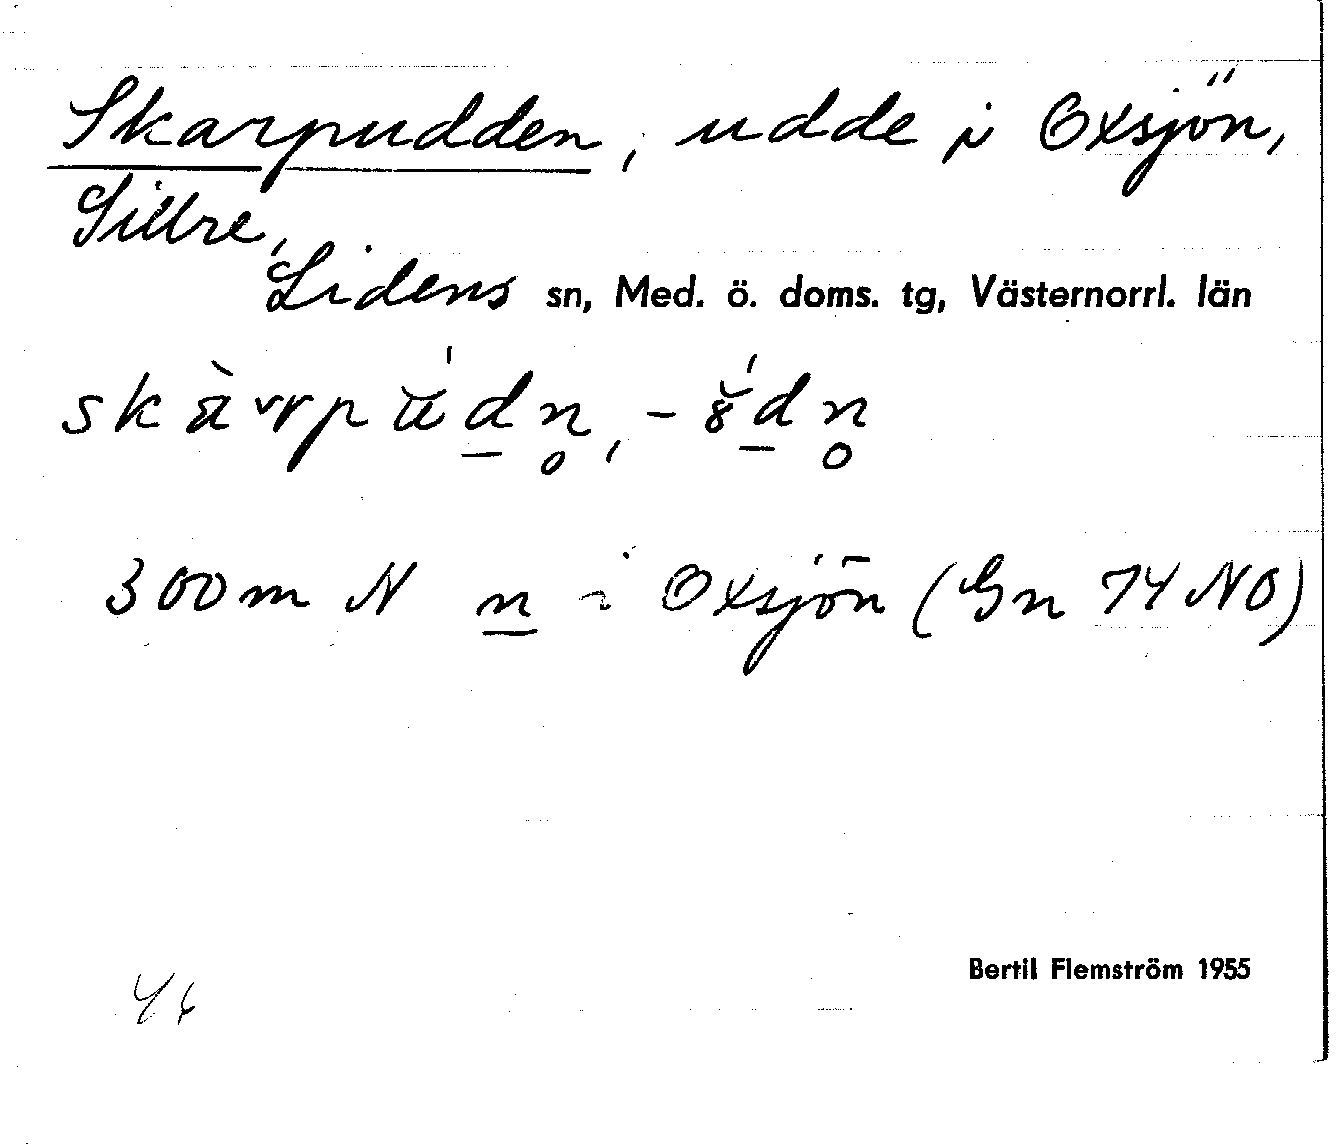 Skarpudden, udde i Oxsjön,
Sillre,
Lidens sn, Med. ö. doms. tg, Västernorrl. län
skàrpŭ́d̲n̥, -8̆́d̲n̥
300 m N n̲ i Oxsjön (Gn 74 NO)
Bertil Flemström 1955